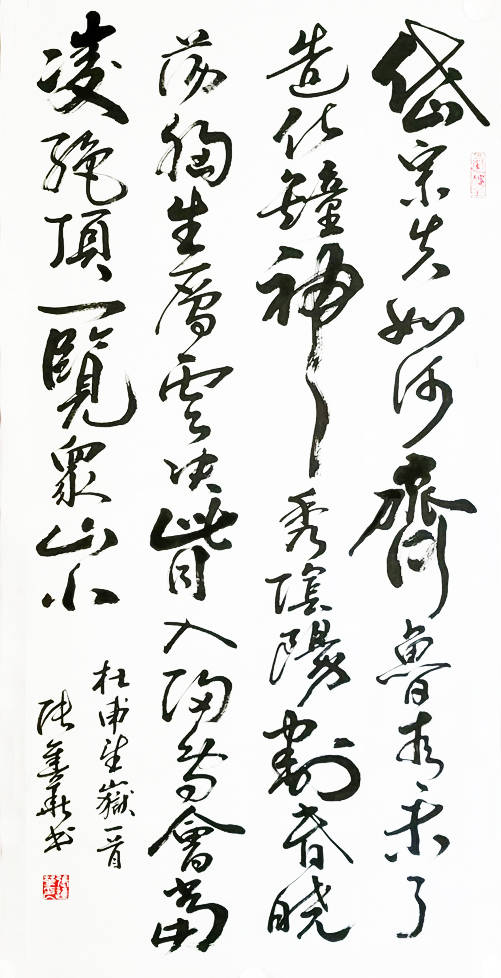 岱宗夫如何齊魯青未了
造化鐘神秀陰陽割昏曉
荡胸生層雲決眥入歸鳥會當
凌絕頂一覽眾山小
杜甫望嶽一首
張華书